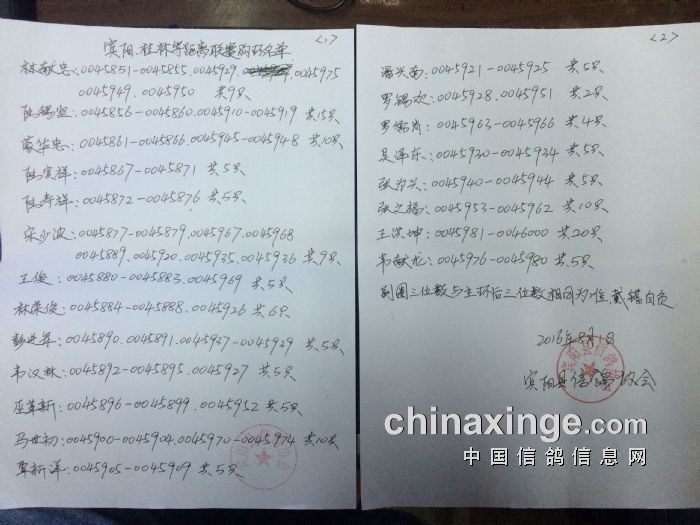 <1>
宾阳.桂林等距离联赛购环名单
林献忠:0045851-0045855.0045929.0045975
0045949.0045950 共9只
阮锡宣:0045856-0045860.0045910-0045919 共15只
蒙华忠:0045861-0045866.0045945-0045948 共10只
阮宾祥:0045867-0045871 共5只
阮寿祥:0045872-0045876 共5只
宋少波:0045877-0045879.0045967.0045968
0045889.0045920.0045935.0045936 共9只
王俊:0045880-0045883.0045969 共5只
林荣俊:0045884-0045888.0045926 共6只
彭进军:0045890.0045891.0045937-0045939 共5只
韦汉林:0045892-0045895.0045927 共5只
巫革新:0045896-0045899.0045952 共5只
马世初:0045900-0045904.0045970-0045974 共10只
覃新洋:0045905-0045909 共5只
<2>
潘兴南:0045921-0045925 共5只
罗锡次:0045928.0045951 共2只
罗儒肖:0045963-0045966 共4只
吴泽东:0045930-0045934 共5只
张为兴:0045940-0045944 共5只
张之福:0045953-0045962 共10只
王洪坤:0045981-0046000 共20只
韦献龙:0045976-0045980 共5只
副圈三位数与主环后三位数相同为1位 戴错自负
2016年8月1日
宾阳县信鸽协会
chinaxinge.com
中国信鸽信息网